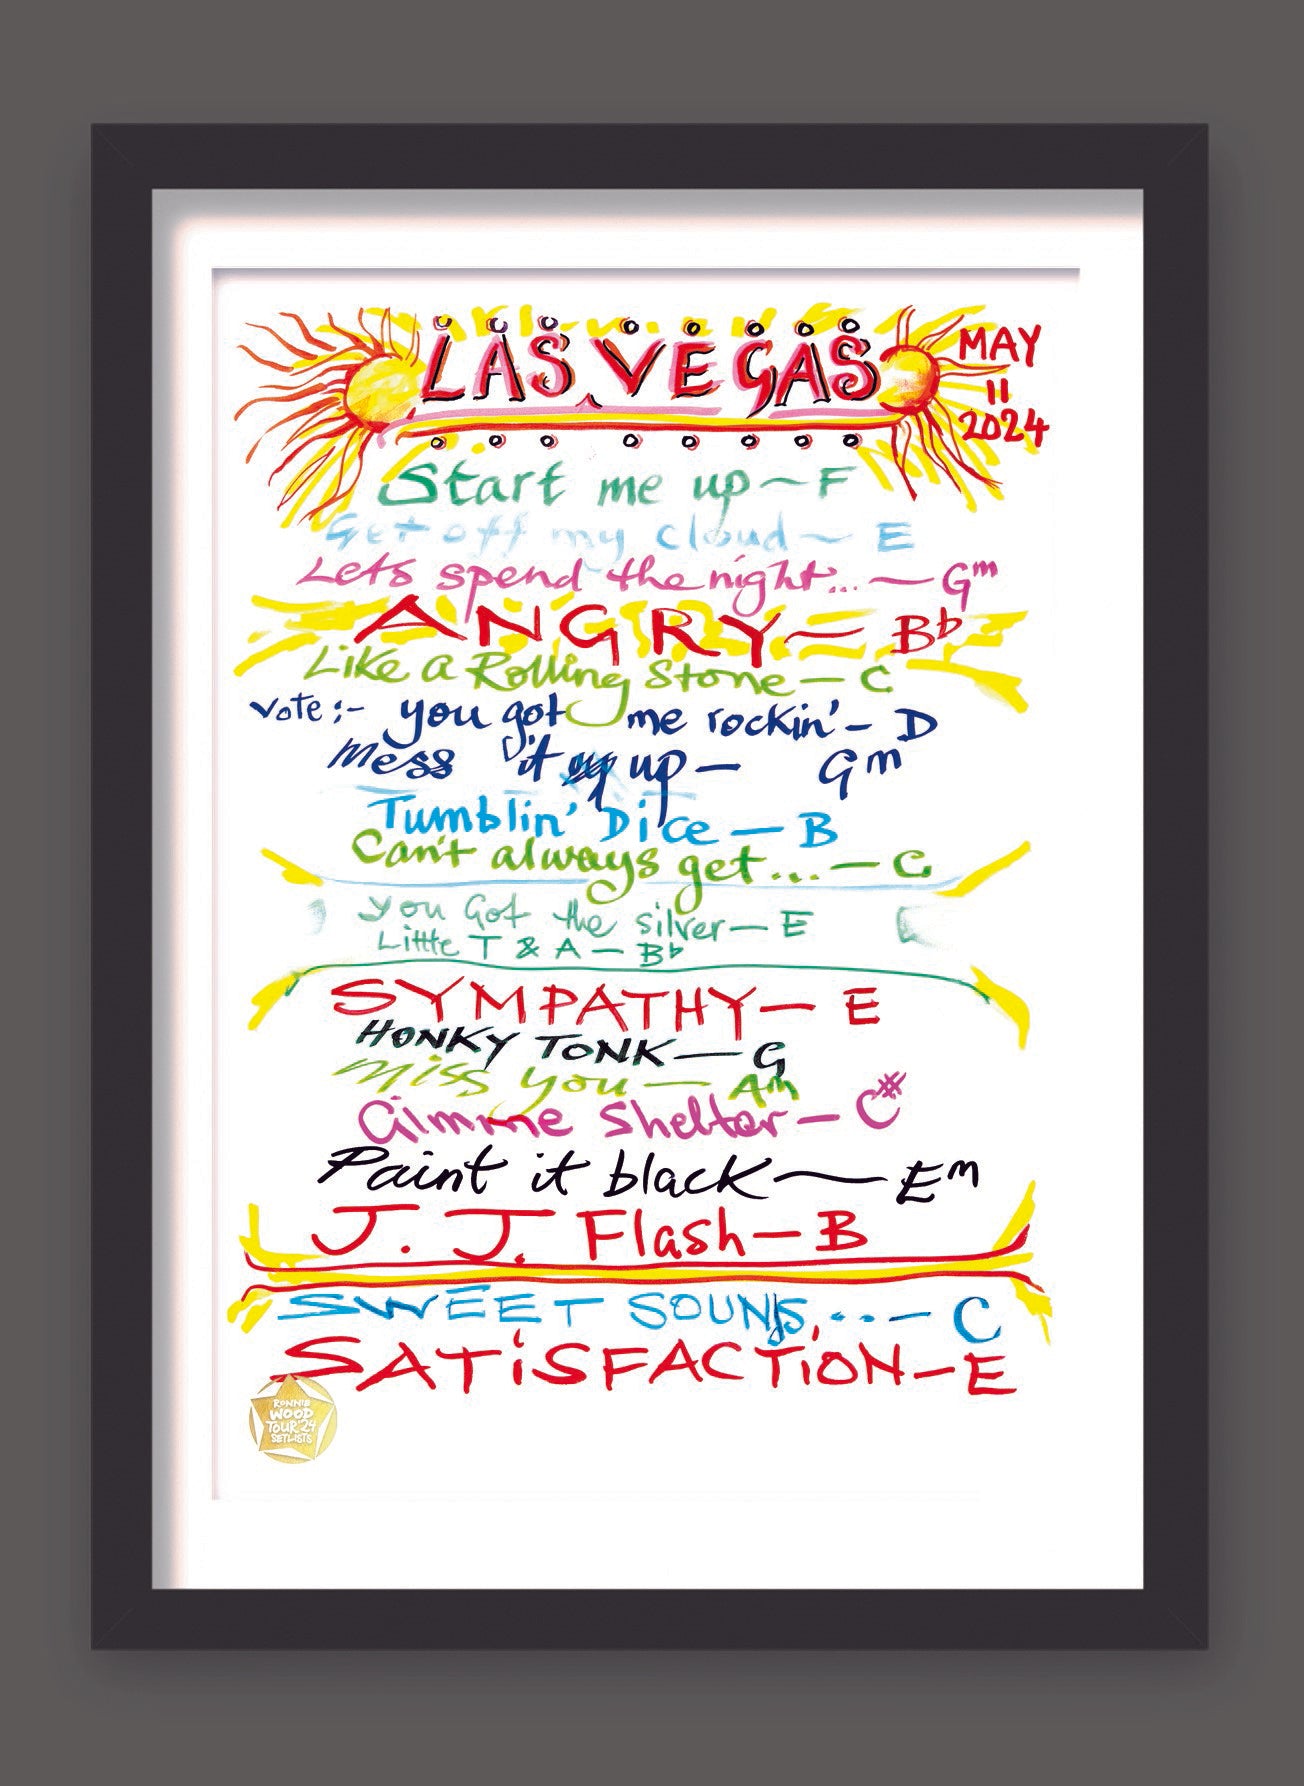 LAS VEGAS
MAY
11
2024
Start me up ~ F
Get off my cloud ~ E
Lets spend the night... — Gm
ANGRY — B♭
Like a Rolling Stone — C
Vote:- you got me rockin' - D
Mess it up — Gm
Tumblin' Dice — B
Can't always get... — C
you Got the silver — E
Little T & A — B♭
SYMPATHY — E
HONKY TONK — G
Miss you — Am
Gimme Shelter — C#
Paint it black — Em
J. J. Flash — B
SWEET SOUNDS... — C
SATiSFACTiON — E
RONNIE
WOOD
TOUR '24
SETLISTS